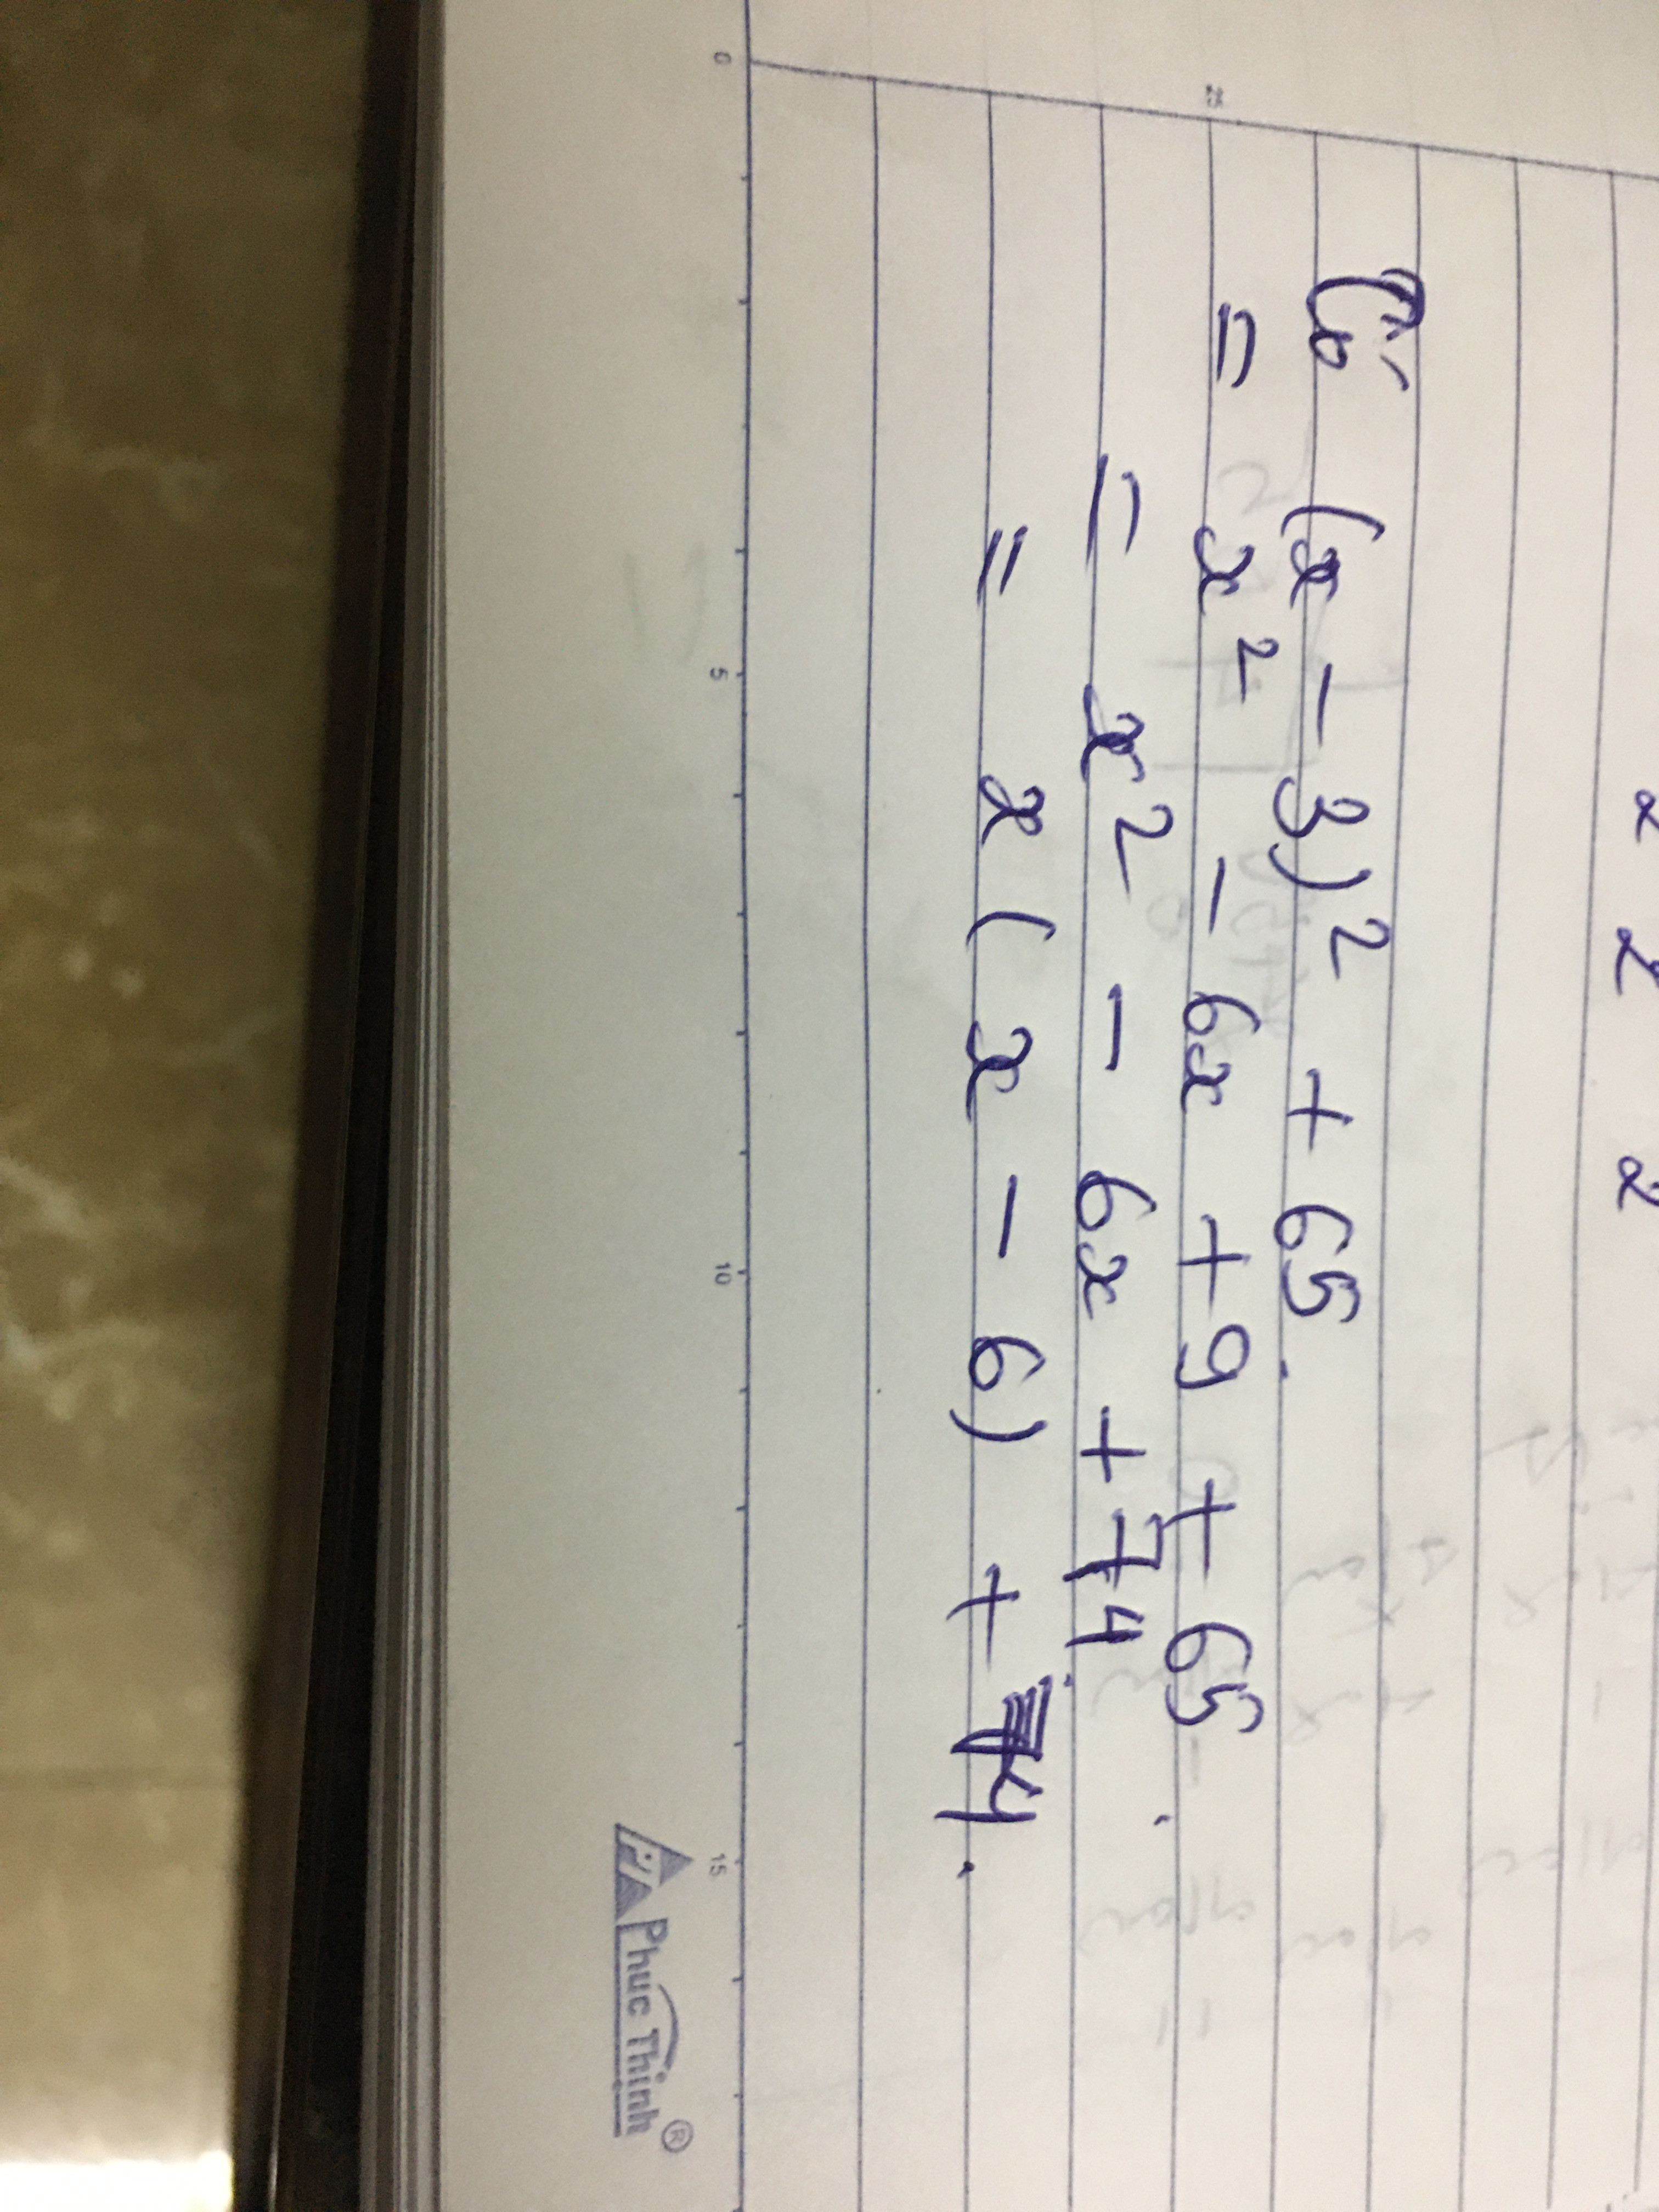 2 2 2
Có (x - 3)² + 65.
= x² - 6x + 9 + 65.
= x² - 6x + 74.
= x (x - 6) + 74.
25
0 5 10 15
Phuc Thinh ®